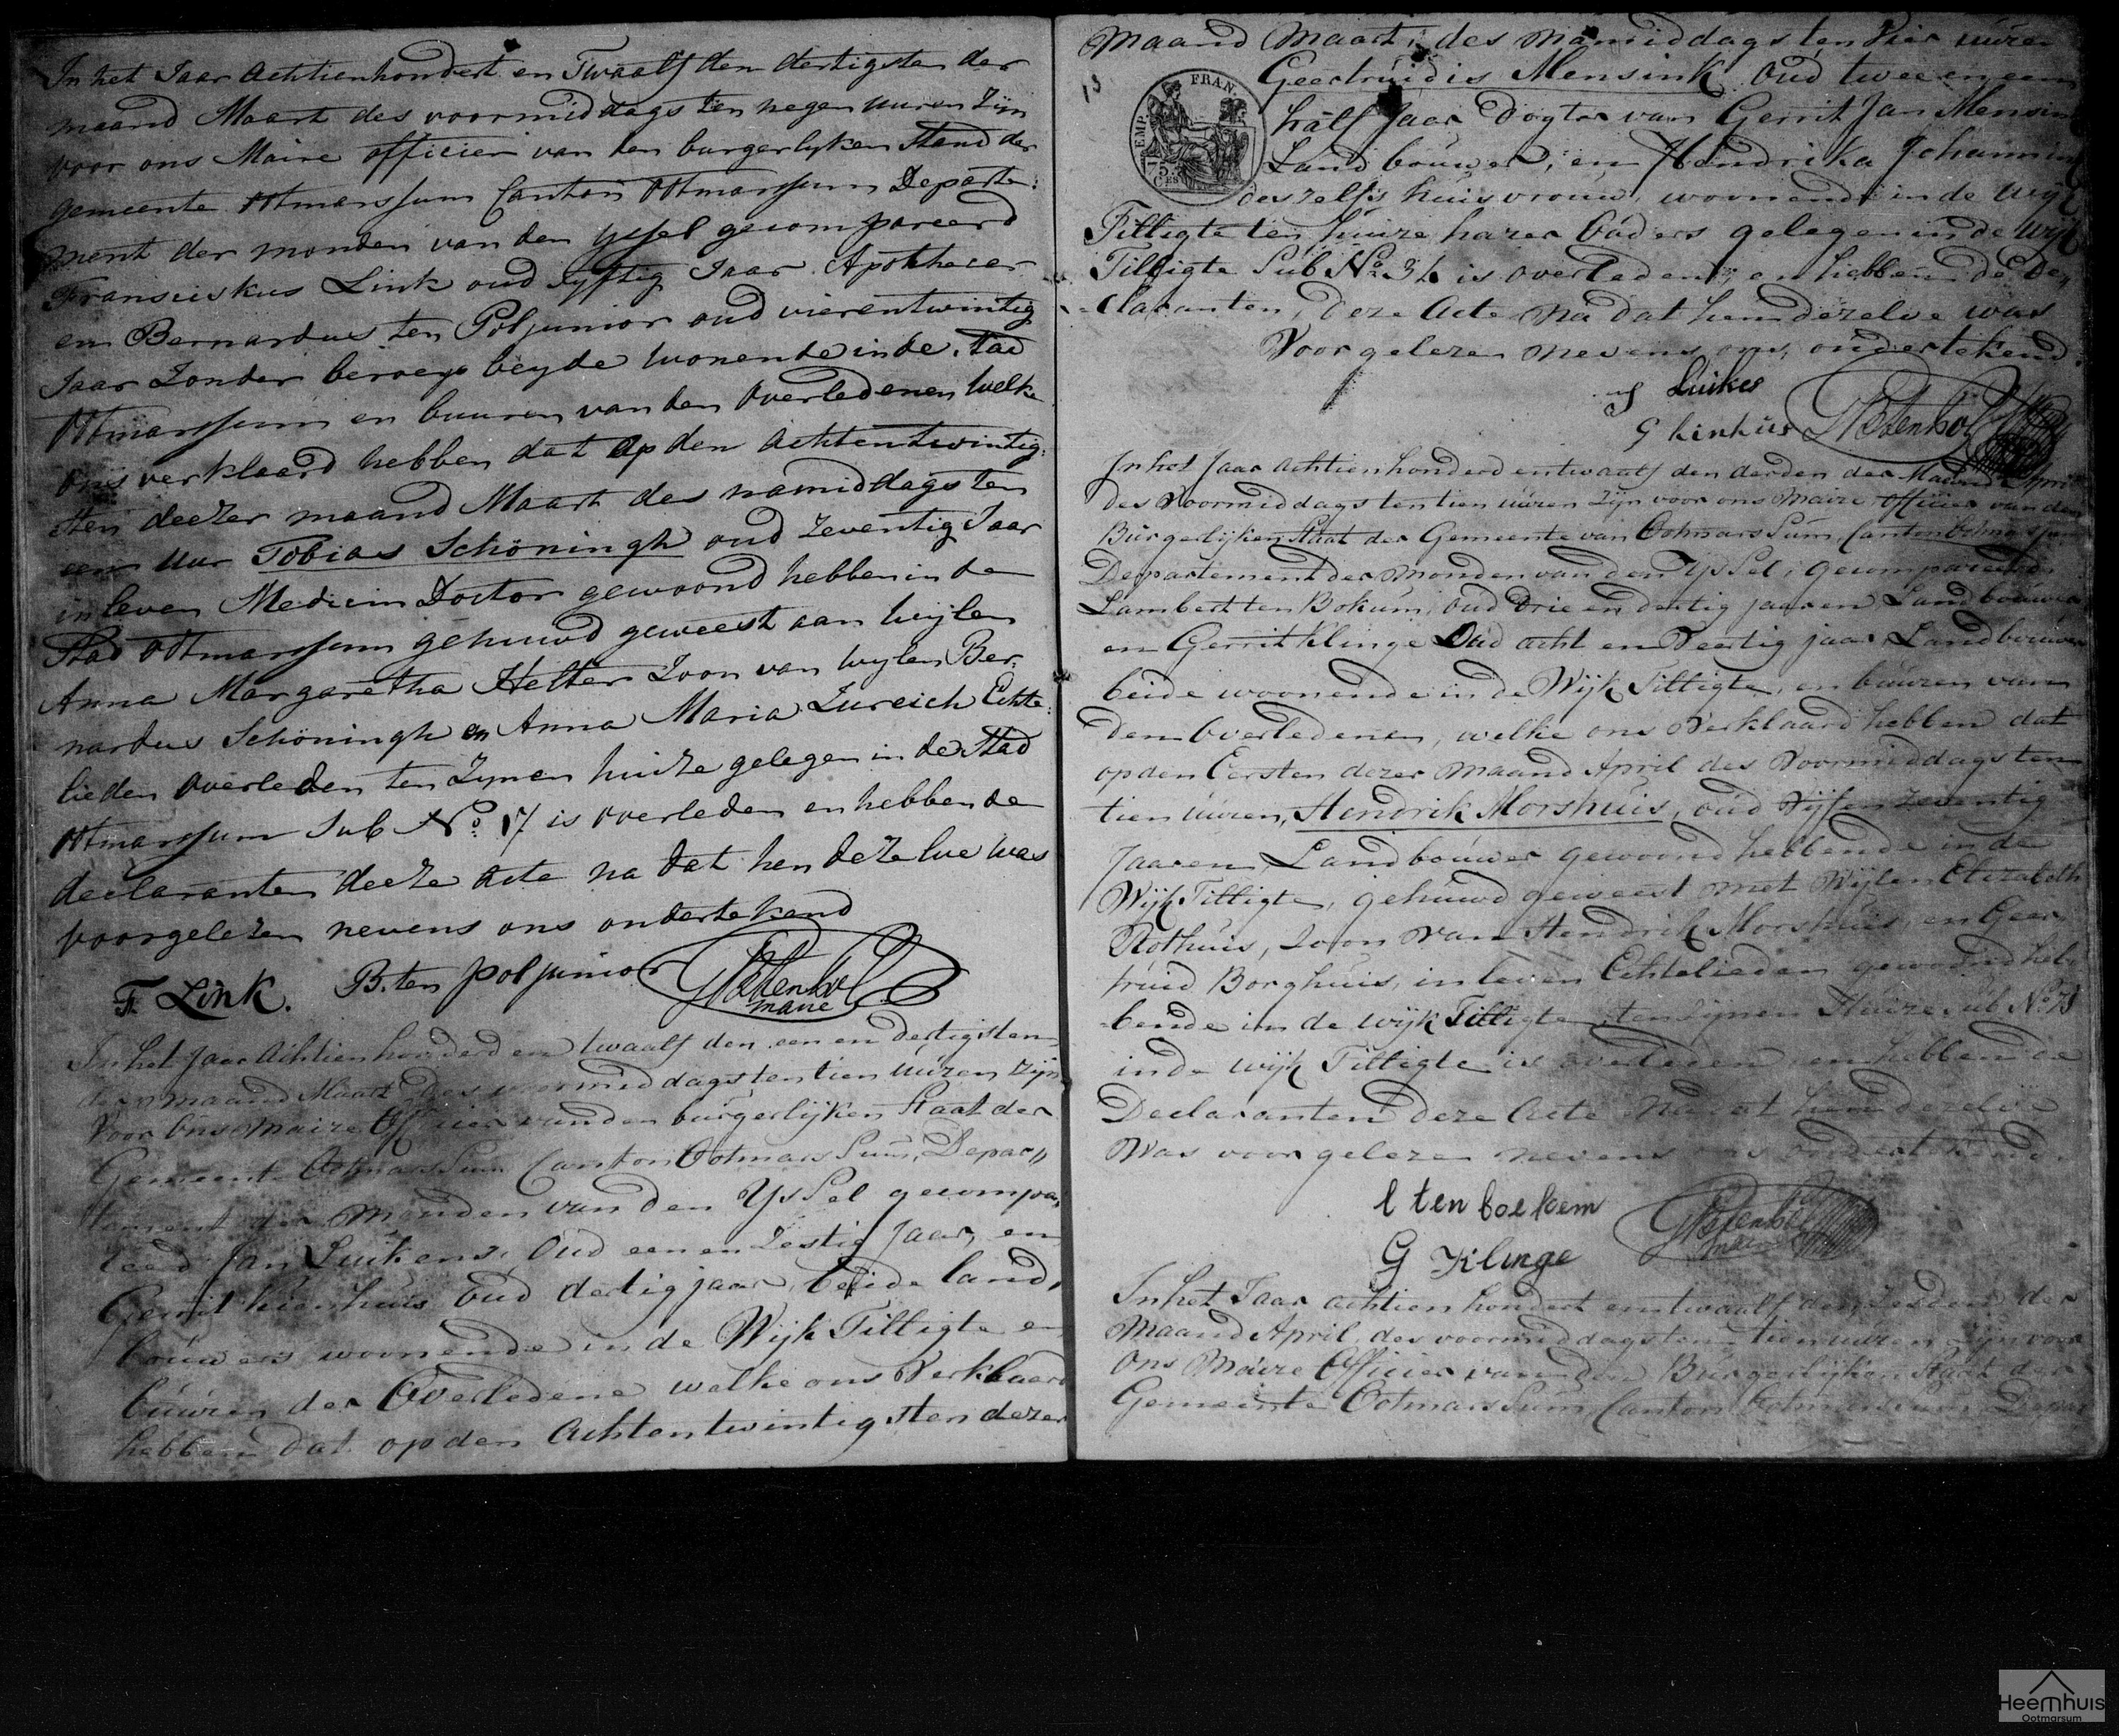 In het Jaar Achtienhondert en Twaalf den dertigsten der
maand Maart des voormiddags ten negen uuren Zijn
voor ons Maire officier van den burgerlyken Stand der
gemeente Otmarssum Canton Otmarssum Departe:
ment der monden van den yssel gecompareerd
Fransciskus Link oud vyftig Jaar Apothecer
en Bernardus ten Pol junior oud vierentwintig
Jaar Zonder beroep beyde wonende in de Stad
Otmarssum en buuren van den Overledenen welke
ons verklaard hebben dat op den achtentwintig:
sten deezer maand Maart des namiddags ten
een uur Tobias Schöningh oud Zeventig Jaar
in leven Medicin Doctor gewoond hebben in de
Stad Otmarssum gehuwd geweest aan wylen
Anna Margaretha Helter Zoon van wylen Ber:
nardus Schöningh en Anna Maria Zureich Echte:
lieden overleden ten Zynen huize gelegen in de Stad
Otmarssum Sub No. 17 is overleden en hebben de
declaranten deeze acte na dat hen dezelve was
voorgelezen nevens ons ondertekend
F. Link. B. ten pol junior
maire
In het Jaar Achtienhonderd en twaalf den een en dertigsten
der maand Maart des voormiddags ten tien uúren zijn
Voor Ons Maire Officier van den burgerlijken Staat der
Gemeente OotmarsSum Canton OotmarsSum, Depar„
tement der Monden van den YsSel gecompa„
reerd Jan Luikens, Oud een en Zestig Jaar, en
Gerrit kienhuis Oud dertig jaar, beide land„
bouwers woonende in de Wijk Tilligte en
buúren der Overledene welke ons Verklaard
hebben dat op den Achtentwintigsten dezer
Maand Maart, des Namiddags ten Vier uúren
13 Geertruidis Mensink Oud twee en een
EMP. FRAN.
75 CES
half Jaar Dogter van Gerrit Jan Mensink
Landbouwer, en Hendrika Johanna
deszelfs huisvrouw, woonende in de Wijk
Tilligte ten huize harer Ouders gelegen in de Wijk
Tilligte Sub No. 34 is overleden, en hebben de De„
claranten, deze Acte na dat hem dezelve was
Voorgelezen nevens ons, ondertekend
Luikes
G kinhuis
In het Jaar Achtienhonderd en twaalf den derden der Maand April
des Voormiddags ten tien uúren zijn voor ons Maire Officier van den
Burgerlijken Staat der Gemeente van OotmarsSum, Canton Ootmarssum
Departement der Monden van den YsSel, gecompareerd
Lambert ten Bokum, oud Drie en dertig jaaren Landbouwer
en Gerrit Klinge Oud acht en Veertig jaar Landbouwer
beide woonende in de Wijk Tilligte, en buúren van
den Overledenen, welke ons Verklaard hebben dat
op den Eersten dezer Maand April des Voormiddags ten
tien uúren, Hendrik Morshuis, oud Vijf en zeventig
Jaaren, Landbouwer gewoond hebbende in de
Wijk Tilligte, gehuwd geweest met Wijlen Elizabeth
Rothuis, Zoon van Hendrik Morshuis, en Geer
truid Borghuis, in leven Echtelieden gewoond heb
bende in de Wijk Tilligte, ten Zijnen Huize, sub No 73
in de Wijk Tilligte is overleden en hebben de
Declaranten deze Acte Na dat hem dezelve
Was voorgelezen nevens ons ondertekend.
l ten boekem
G Klinge
maire
In het Jaar achtienhondert en twaalf den Zesden der
Maand April, des voormiddags ten tien uúren zijn voor
Ons Maire Officier van den Burgerlijken Staat der
Gemeinte OotmarsSum, Canton Ootmarssum Depar
Heemhuis
Ootmarsum